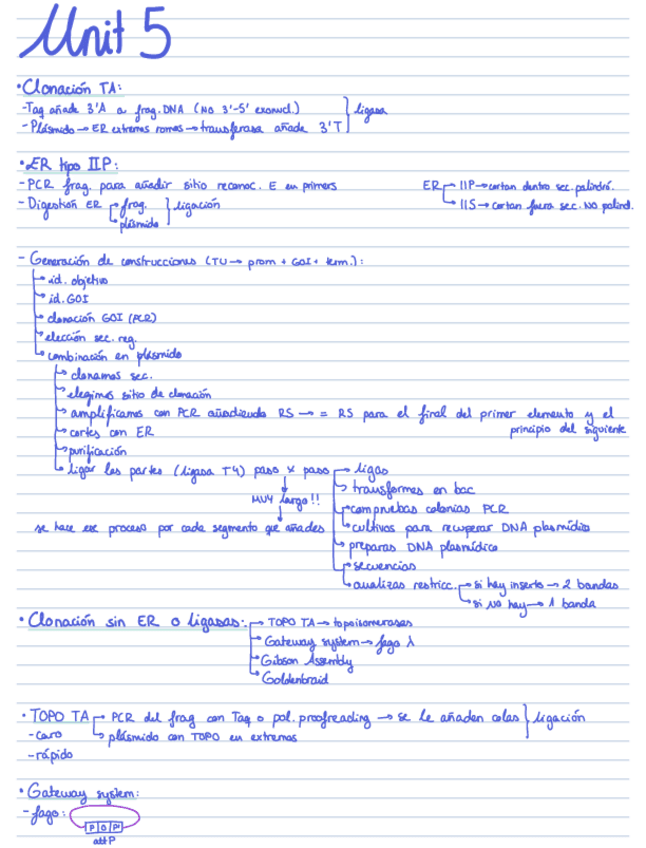 Unit 5
• Clonación TA:
- Taq añade 3'A a frag. DNA (No 3'-5' exonucl.)
ligasa
- Plásmido → ER extremos romos → transferasa añade 3'T
• ER tipo IIP:
- PCR frag. para añadir sitio reconoc. E en primers
ER → IIP → cortan dentro sec. palindró.
- Digestión ER → frag.
→ plásmido
ligación
→ IIS → cortan fuera sec. NO palind.
- Generación de construcciones (TU → prom + GOI + term.):
→ id. objetivo
→ id. GOI
→ clonación GOI (PCR)
→ elección sec. reg.
→ combinación en plásmido
→ clonamos sec.
→ elegimos sitio de clonación
→ amplificamos con PCR añadiendo RS → = RS para el final del primer elemento y el
principio del siguiente
→ cortes con ER
→ purificación
→ ligar las partes (ligasa T4) paso x paso → ligas
→ transformas en bac
MUY largo!!
→ compruebas colonias PCR
se hace ese proceso por cada segmento que añades
→ cultivas para recuperar DNA plasmídico
→ preparas DNA plasmídico
→ secuencias
→ analizas restricc. → si hay inserto → 2 bandas
→ si NO hay → 1 banda
• Clonación sin ER o ligasas: → TOPO TA → topoisomerasas
→ Gateway system → fago λ
→ Gibson Assembly
→ Goldenbraid
• TOPO TA → PCR del frag con Taq o pol. proofreading → se le añaden colas
ligación
- caro → plásmido con TOPO en extremos
- rápido
• Gateway system:
- fago:
P O P'
attP